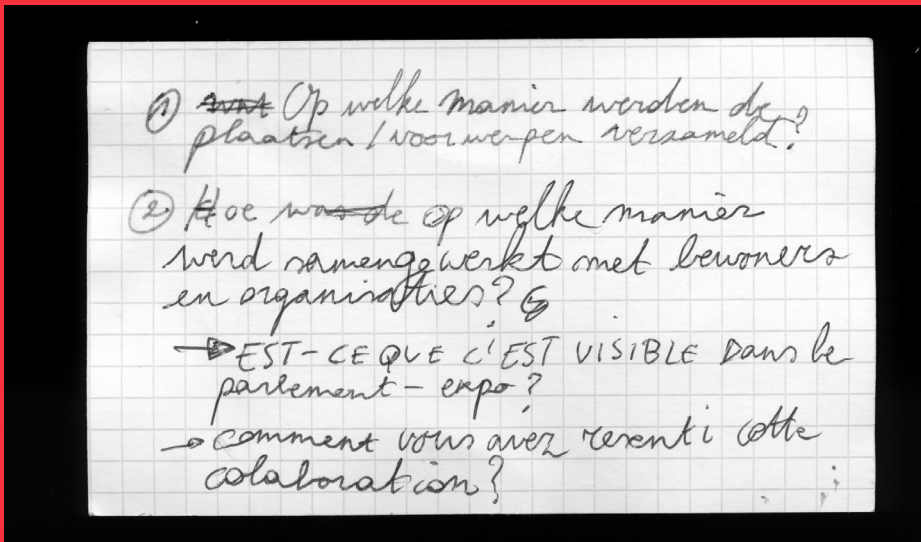 ① Op welke manier werden de
plaatsen / voorwerpen verzameld?
② Hoe op welke manier
werd samengewerkt met bewoners
en organisaties?
→ EST-CE QUE C'EST VISIBLE Dans le
parlement - expo?
→ comment vous avez resenti cette
colaboration?